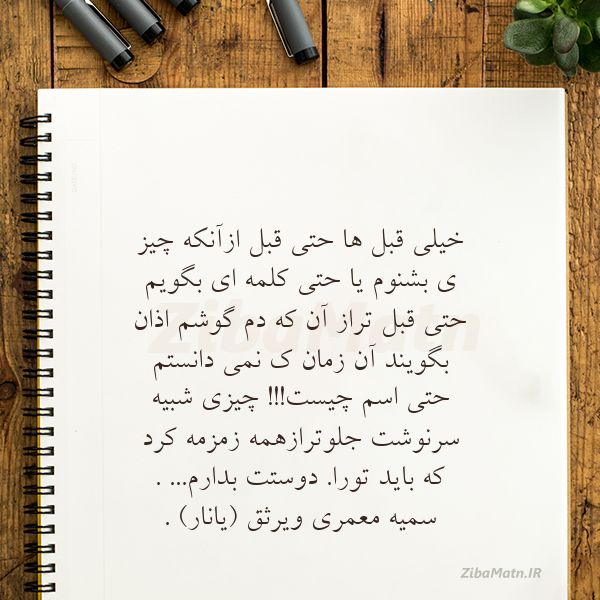 خیلی قبل ها حتی قبل ازآنکه چیز
ی بشنوم یا حتی کلمه ای بگویم
حتی قبل تراز آن که دم گوشم اذان
بگویند آن زمان ک نمی دانستم
حتی اسم چیست!!! چیزی شبیه
سرنوشت جلوترازهمه زمزمه کرد
که باید تورا. دوستت بدارم... .
سمیه معمری ویرثق (یانار) .
ZibaMatn
ZibaMatn.IR